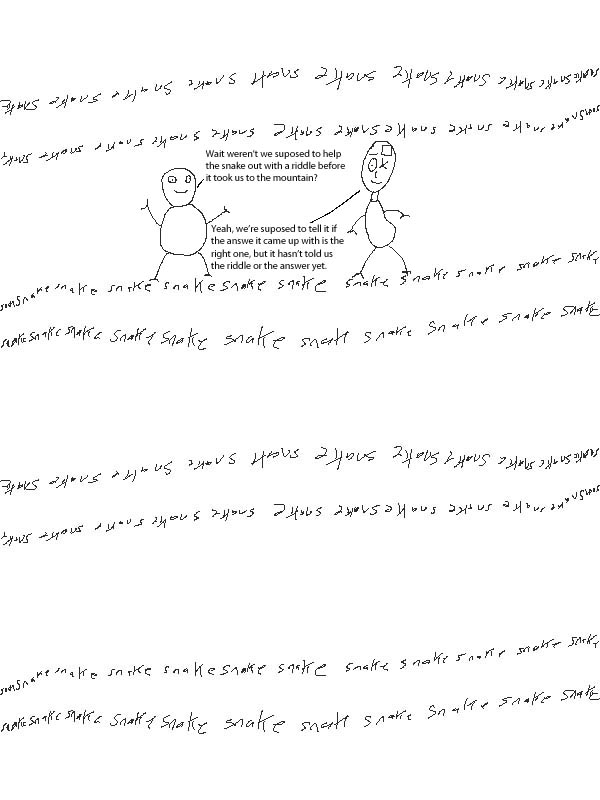 snake snake snake snake snake snake snake snake snake snake snake snake snake
snake snake snake snake snake snake snake snake snake snake snake snake
Wait weren't we suposed to help
the snake out with a riddle before
it took us to the mountain?
Yeah, we're suposed to tell it if
the answe it came up with is the
right one, but it hasn't told us
the riddle or the answer yet.
snake snake snake snake snake snake snake snake snake snake snake snake
snake snake snake snake snake snake snake snake Snake snake snake snake
snake snake snake snake snake snake snake snake snake snake snake snake snake
snake snake snake snake snake snake snake snake snake snake snake snake
snake snake snake snake snake snake snake snake snake snake snake snake
snake snake snake snake snake snake snake snake Snake snake snake snake